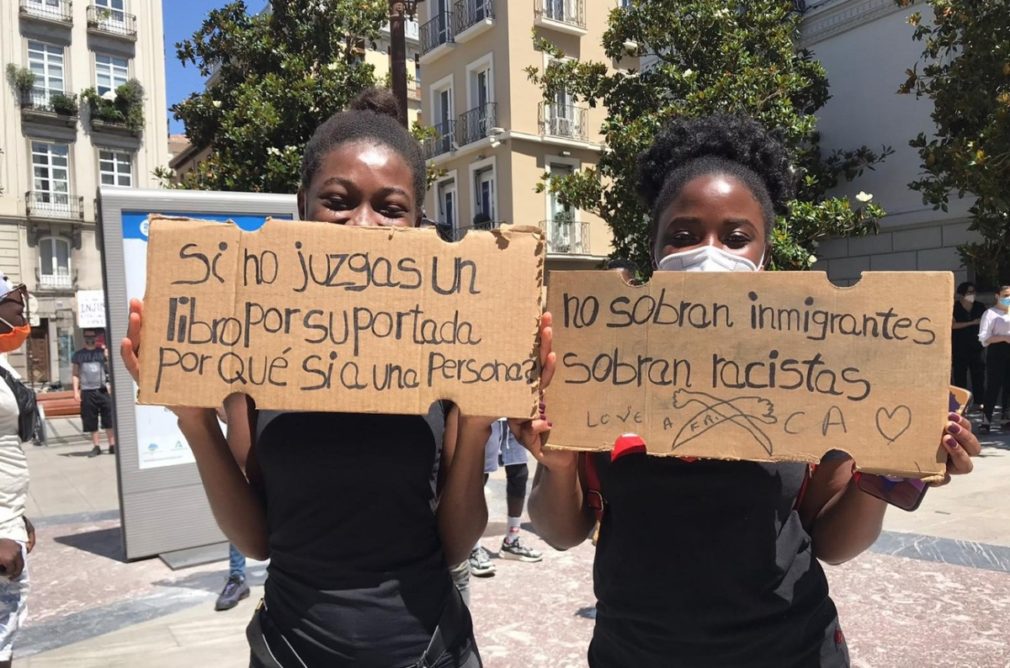 Si no juzgas un
libro por su portada
por Qué si a una Persona?
no sobran inmigrantes
sobran racistas
LOVE A FRI CA